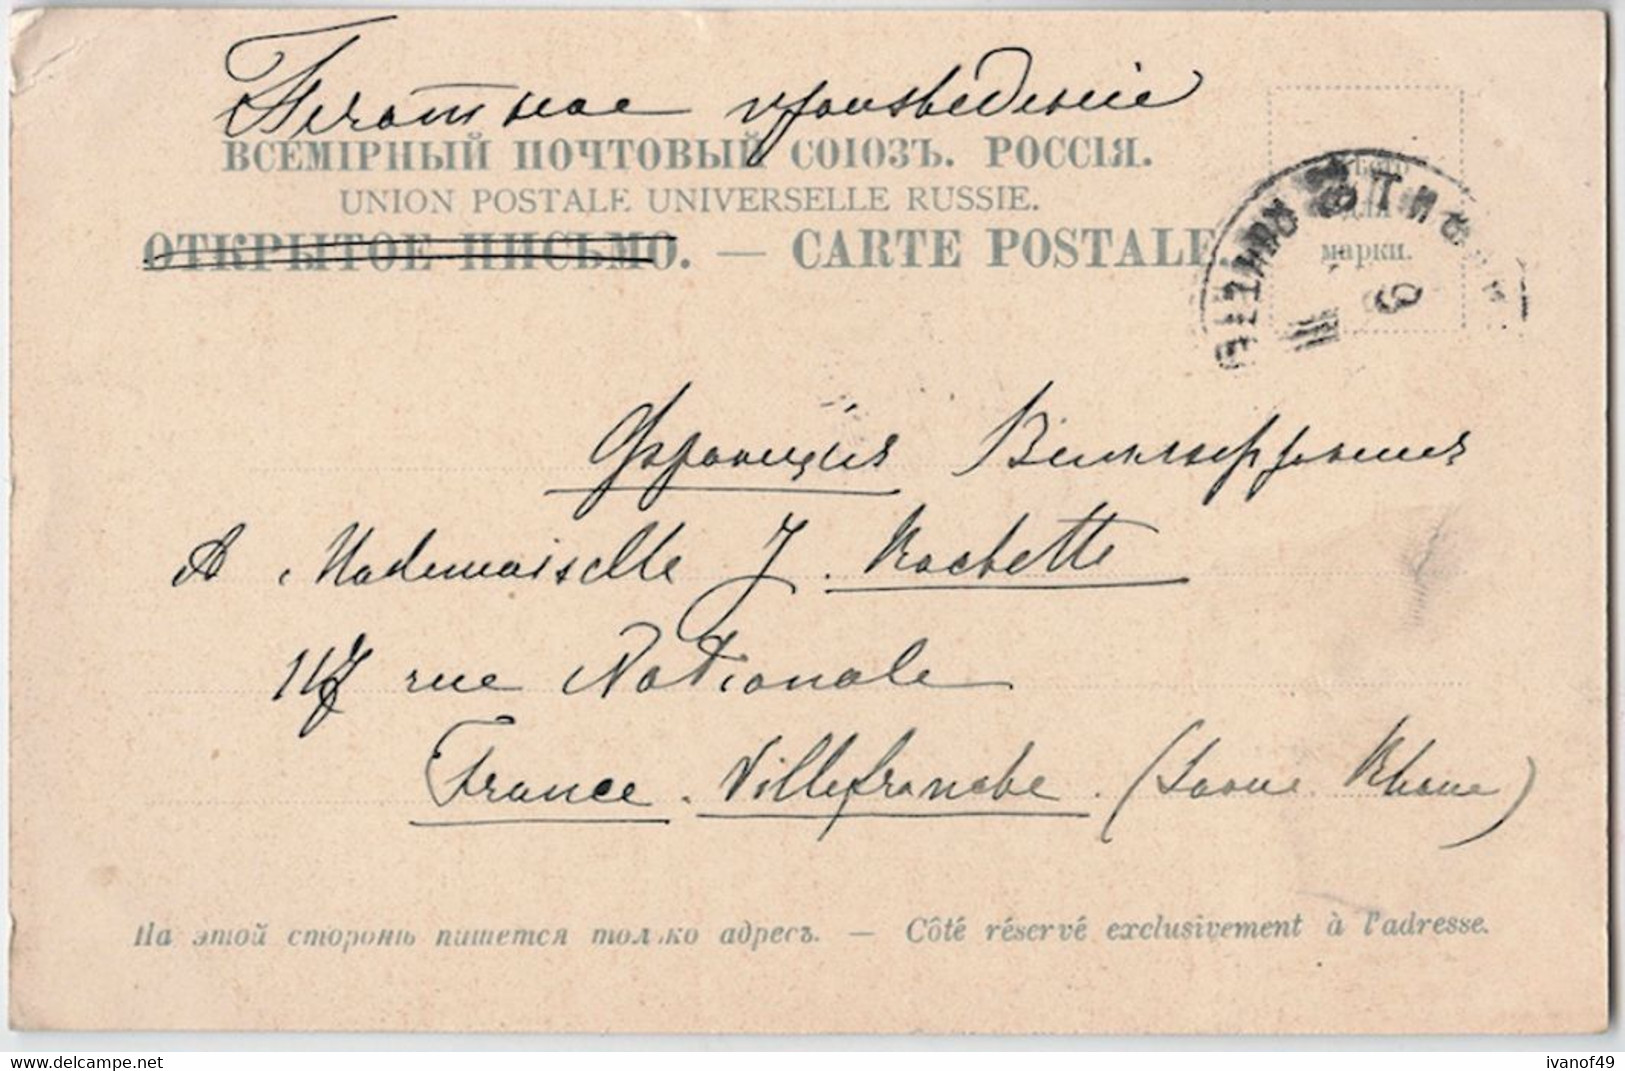 Печатное произведение
ВСЕМІРНЫЙ ПОЧТОВЫЙ СОЮЗЪ. РОССІЯ.
UNION POSTALE UNIVERSELLE RUSSIE.
ОТКРЫТОЕ ПИСЬМО. — CARTE POSTALE.
МѢСТО
для
марки.
9
III
Франція
A Mademoiselle J. Rochette
117 rue Nationale
France. Villefranche. (Saone Rhone)
На этой сторонѣ пишется только адресъ. — Côté réservé exclusivement à l'adresse.
delcampe.net
ivanof49